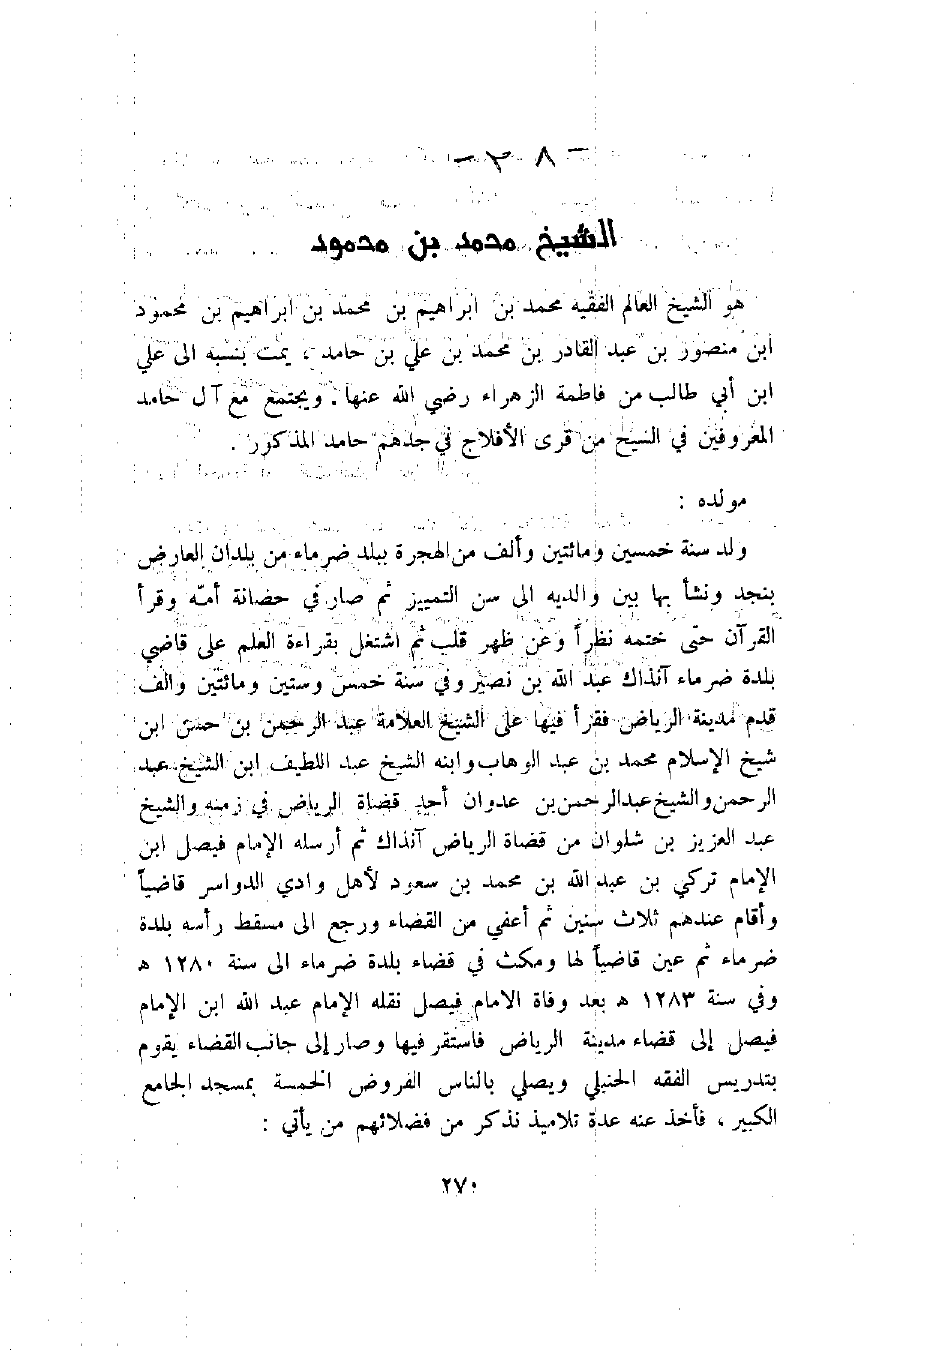 - ٣٨ -
الشيخ محمد بن محمود
هو الشيخ العالم الفقيه محمد بن ابراهيم بن محمد بن ابراهيم بن محمود
ابن منصور بن عبد القادر بن محمد بن علي بن حامد ، يمت بنسبه الى علي
ابن أبي طالب من فاطمة الزهراء رضي الله عنها . ويجتمع مع آل حامد
المعروفين في السيح من قرى الأفلاج في جدهم حامد المذكور .
مولده :
ولد سنة خمسين ومائتين وألف من الهجرة ببلد ضرماء من بلدان العارض
بنجد ونشأ بها بين والديه الى سن التمييز ثم صار في حضانة أمّه وقرأ
القرآن حتى ختمه نظراً وعن ظهر قلب ثم اشتغل بقراءة العلم على قاضي
بلدة ضرماء آنذاك عبد الله بن نصير وفي سنة خمس وستين ومائتين والف
قدم مدينة الرياض فقرأ فيها على الشيخ العلامة عبد الرحمن بن حسن ابن
شيخ الإسلام محمد بن عبد الوهاب وابنه الشيخ عبد اللطيف ابن الشيخ عبد
الرحمن والشيخ عبدالرحمن بن عدوان أحد قضاة الرياض في زمنه والشيخ
عبد العزيز بن شلوان من قضاة الرياض آنذاك ثم أرسله الإمام فيصل ابن
الإمام تركي بن عبد الله بن محمد بن سعود لأهل وادي الدواسر قاضياً
وأقام عندهم ثلاث سنين ثم أعفي من القضاء ورجع الى مسقط رأسه بلدة
ضرماء ثم عين قاضياً لها ومكث في قضاء بلدة ضرماء الى سنة ١٢٨٠ هـ
وفي سنة ١٢٨٣ هـ بعد وفاة الامام فيصل نقله الإمام عبد الله ابن الإمام
فيصل إلى قضاء مدينة الرياض فاستقر فيها وصار إلى جانب القضاء يقوم
بتدريس الفقه الحنبلي ويصلي بالناس الفروض الخمسة بمسجد الجامع
الكبير ، فأخذ عنه عدة تلاميذ نذكر من فضلائهم من يأتي :
٢٧٠